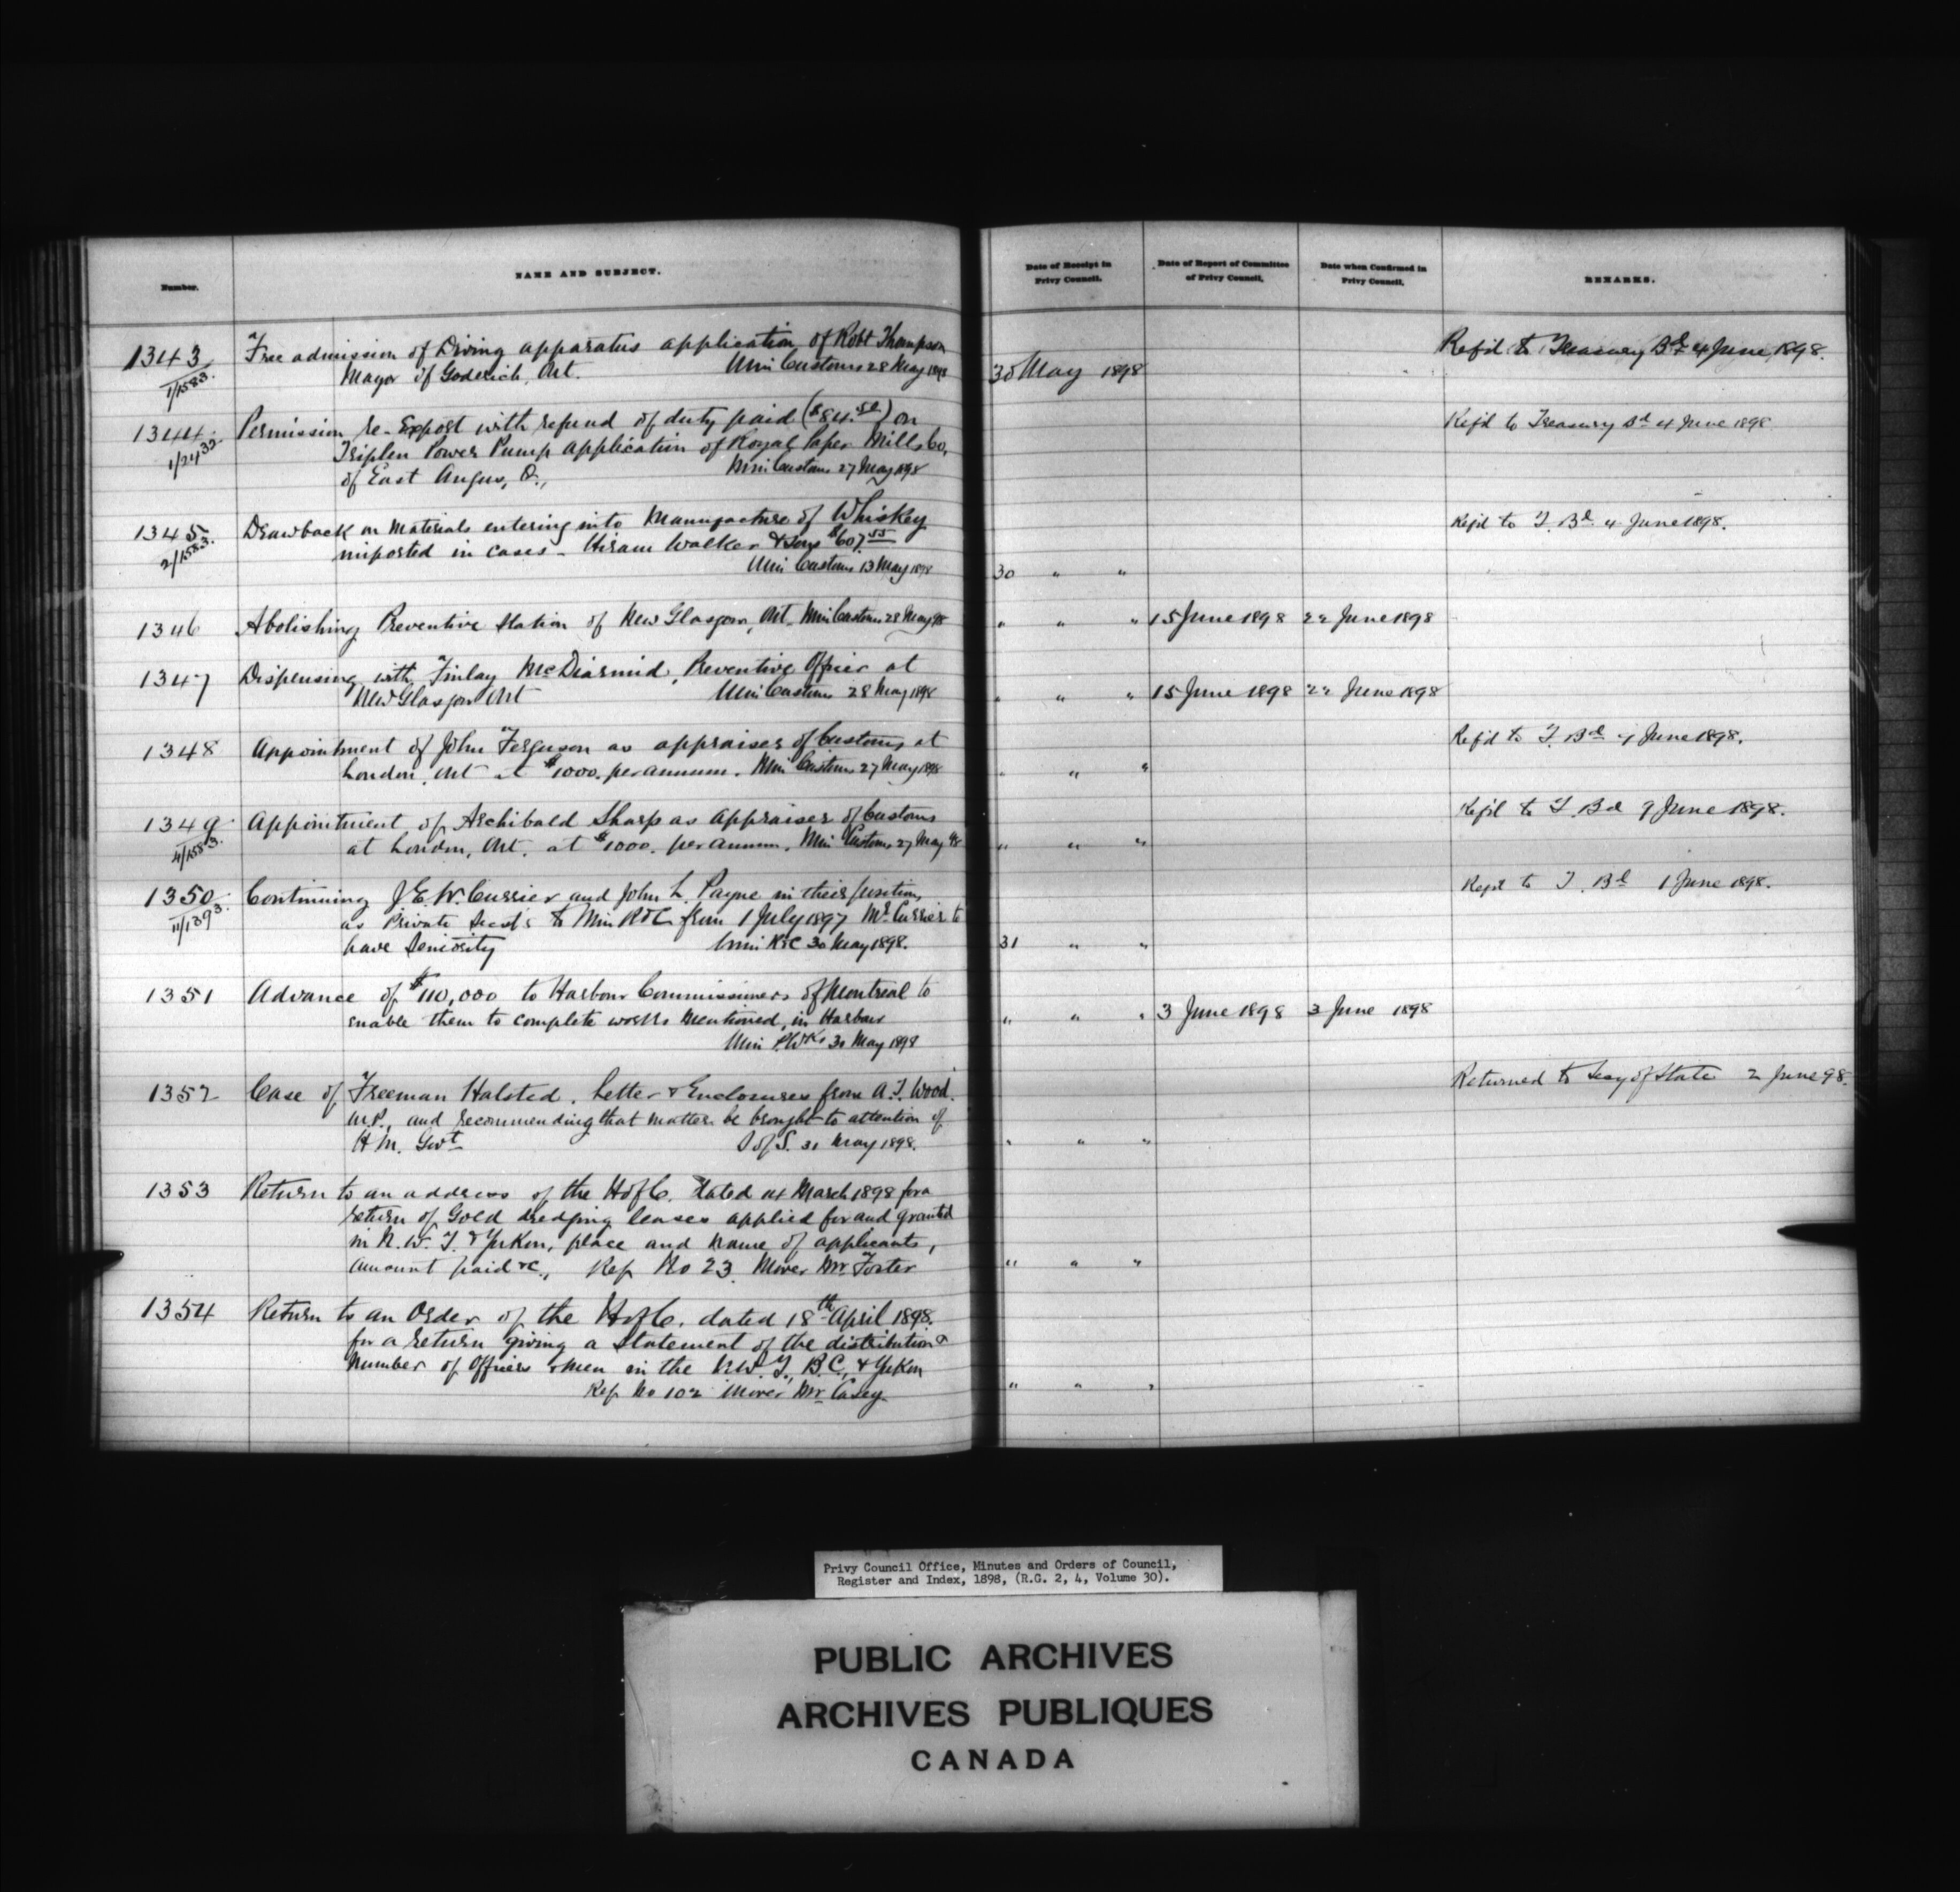 Number.
NAME AND SUBJECT.
Date of Receipt in
Privy Council.
Date of Report of Committee
of Privy Council.
Date when Confirmed in
Privy Council.
REMARKS.
1343 Free admission of Diving apparatus application of Robt Thompson
1/1583. Mayor of Goderich, Ont. Min Customs 28 May 1898
30 May 1898
Ref'd to Treasury Bd 4 June, 1898.
1344 Permission re-Export with refund of duty paid ($84.50) on
Triplen Power Pump application of Royal Paper Mills Co,
of East Angus, Q., Min Customs 27 May 1898
Ref'd to Treasury Bd 4 June 1898
1345 Drawback on Materials entering into Manufacture of Whiskey
2/1583. imported in cases - Hiram Walker & Sons $607.55
Min Customs 13 May 1898
30 " "
Ref'd to T. Bd. 4 June 1898.
1346 Abolishing Preventive Station of New Glasgow, Ont. Min Customs 28 May 98
" " " 15 June 1898 22 June 1898
1347 Dispensing with Finlay McDiarmid, Preventive Officer at
New Glasgow Ont Min Customs 28 May 1898
" " " 15 June 1898 22 June 1898
1348 Appointment of John Ferguson as appraiser of Customs at
London, Ont at $1000. per annum. Min Customs 27 May 1898
" " "
Ref'd to T. Bd June 1898.
1349 Appointment of Archibald Sharp as Appraiser of Customs
4/1583. at London, Ont. at $1000. per annum. Min Customs 27 May 98
" " "
Ref'd to T. Bd 9 June 1898.
1350 Continuing J.E.W. Currier and John L. Payne in their positions
11/1393. as Private Secy's to Min R&C from 1 July 1897 Mr Currier to
have Seniority Min R&C 30 May 1898.
31 " "
Ref'd to T. Bd 1 June 1898.
1351 Advance of $110,000 to Harbour Commissioners of Montreal to
enable them to complete works mentioned, in Harbour
Min P.Wks 30 May 1898
" " " 3 June 1898 3 June 1898
1352 Case of Freeman Halsted. Letter & Enclosures from A.T. Wood.
M.P., and recommending that matter be brought to attention of
H M. Govt S of S. 31 May 1898.
" " "
Returned to Secy of State 2 June 98.
1353 Return to an address of the H of C. dated 14 March 1898 for a
return of Gold dredging leases applied for and granted
in N. W. T. & Yukon, place and name of applicants,
amount paid &c., Ref No 23. Mover Mr Foster
" " "
1354 Return to an Order of the H of C. dated 18th April 1898.
for a return giving a Statement of the distribution &
Number of Officers & men in the N.W.T., B.C., & Yukon
Ref No 102 Mover Mr Casey
" " "
Privy Council Office, Minutes and Orders of Council,
Register and Index, 1898, (R.G. 2, 4, Volume 30).
PUBLIC ARCHIVES
ARCHIVES PUBLIQUES
CANADA